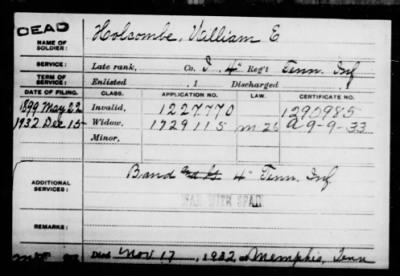 DEAD
NAME OF SOLDIER: Holcombe, William E
SERVICE: Late rank, Co. I, 4" Reg't Tenn. Inf
TERM OF SERVICE: Enlisted , 1 Discharged
DATE OF FILING. CLASS. APPLICATION NO. LAW. CERTIFICATE NO.
1899 May 22 Invalid, 1227.770 1290985
1932 Dec 15 Widow, 1729115 A 9-9-33
Minor,
ADDITIONAL SERVICES: Band 4" Tenn. Inf
WAR WITH SPAIN
REMARKS:
Died Nov 17, 1932, Memphis, Tenn